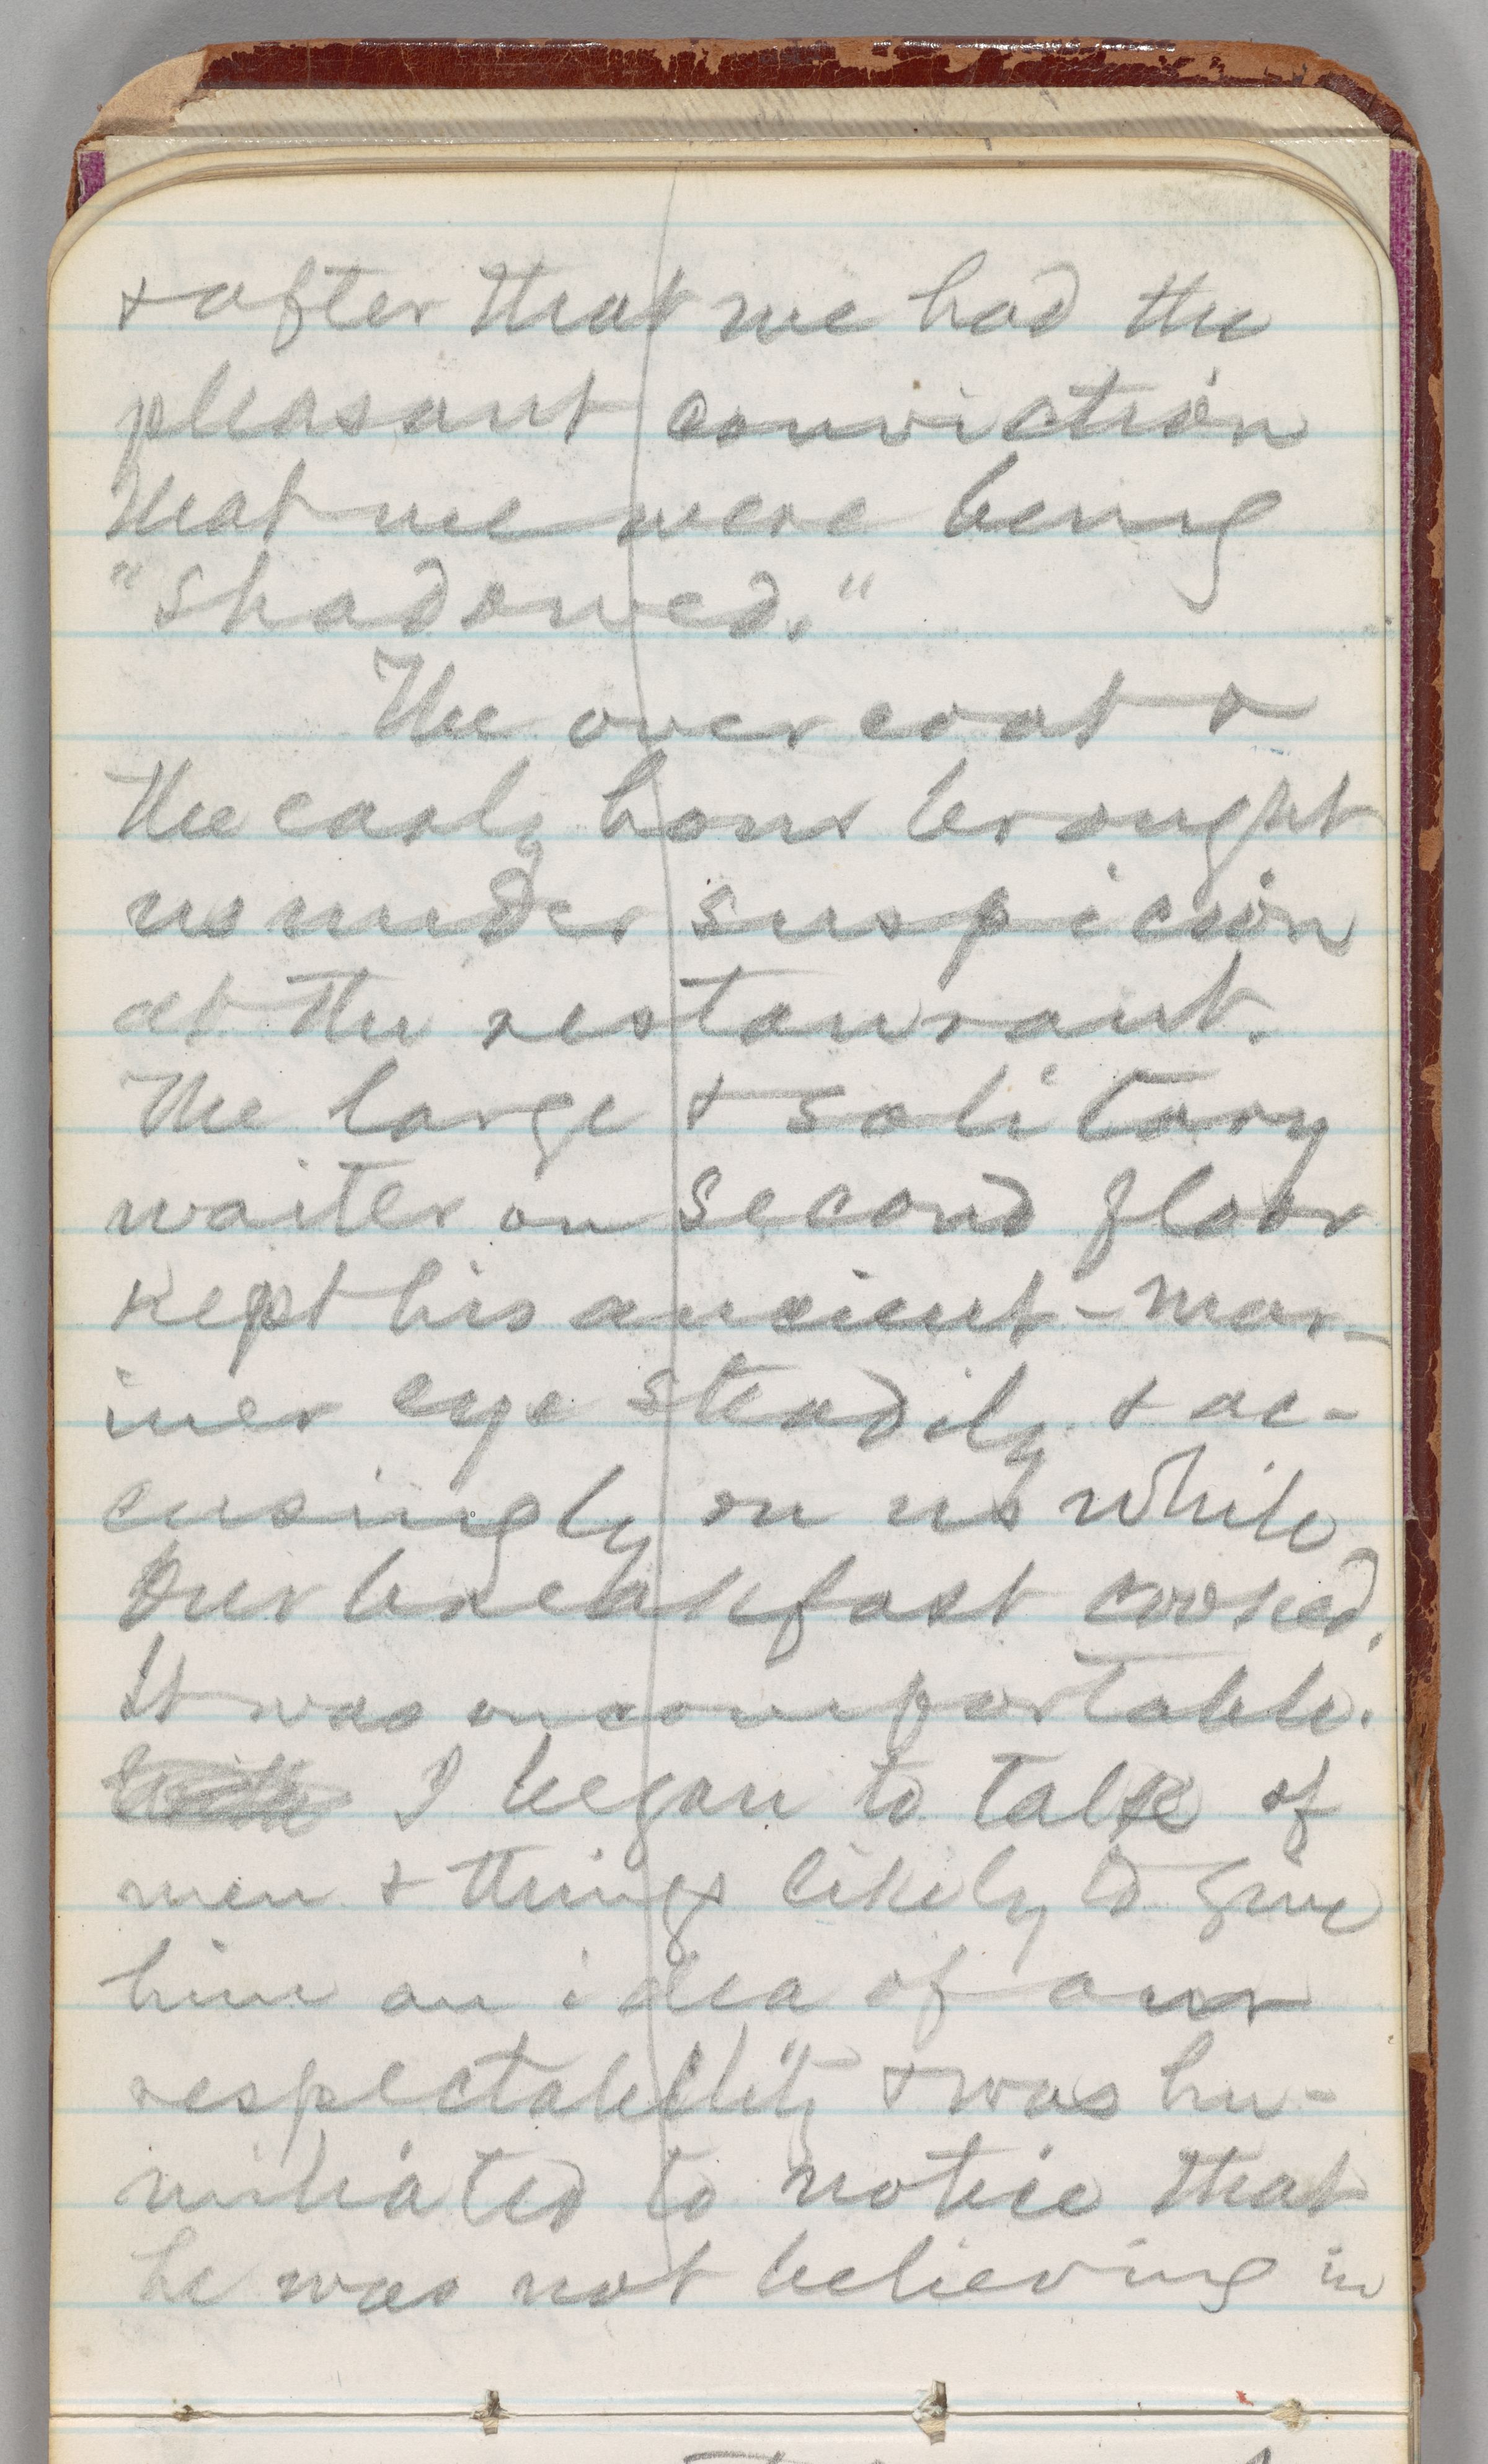 & after that we had the
pleasant conviction
that we were being
"shadowed."
The overcoat &
the early hour brought
us under suspicion
at the restaurant.
The large & solitary
waiter on second floor
kept his ancient-mar-
iner eye steadily & ac-
cusingly on us while
our breakfast cooked.
It was uncomfortable.
I began to talk of
men & things likely to give
him an idea of our
respectability & was hu-
miliated to notice that
he was not believing in